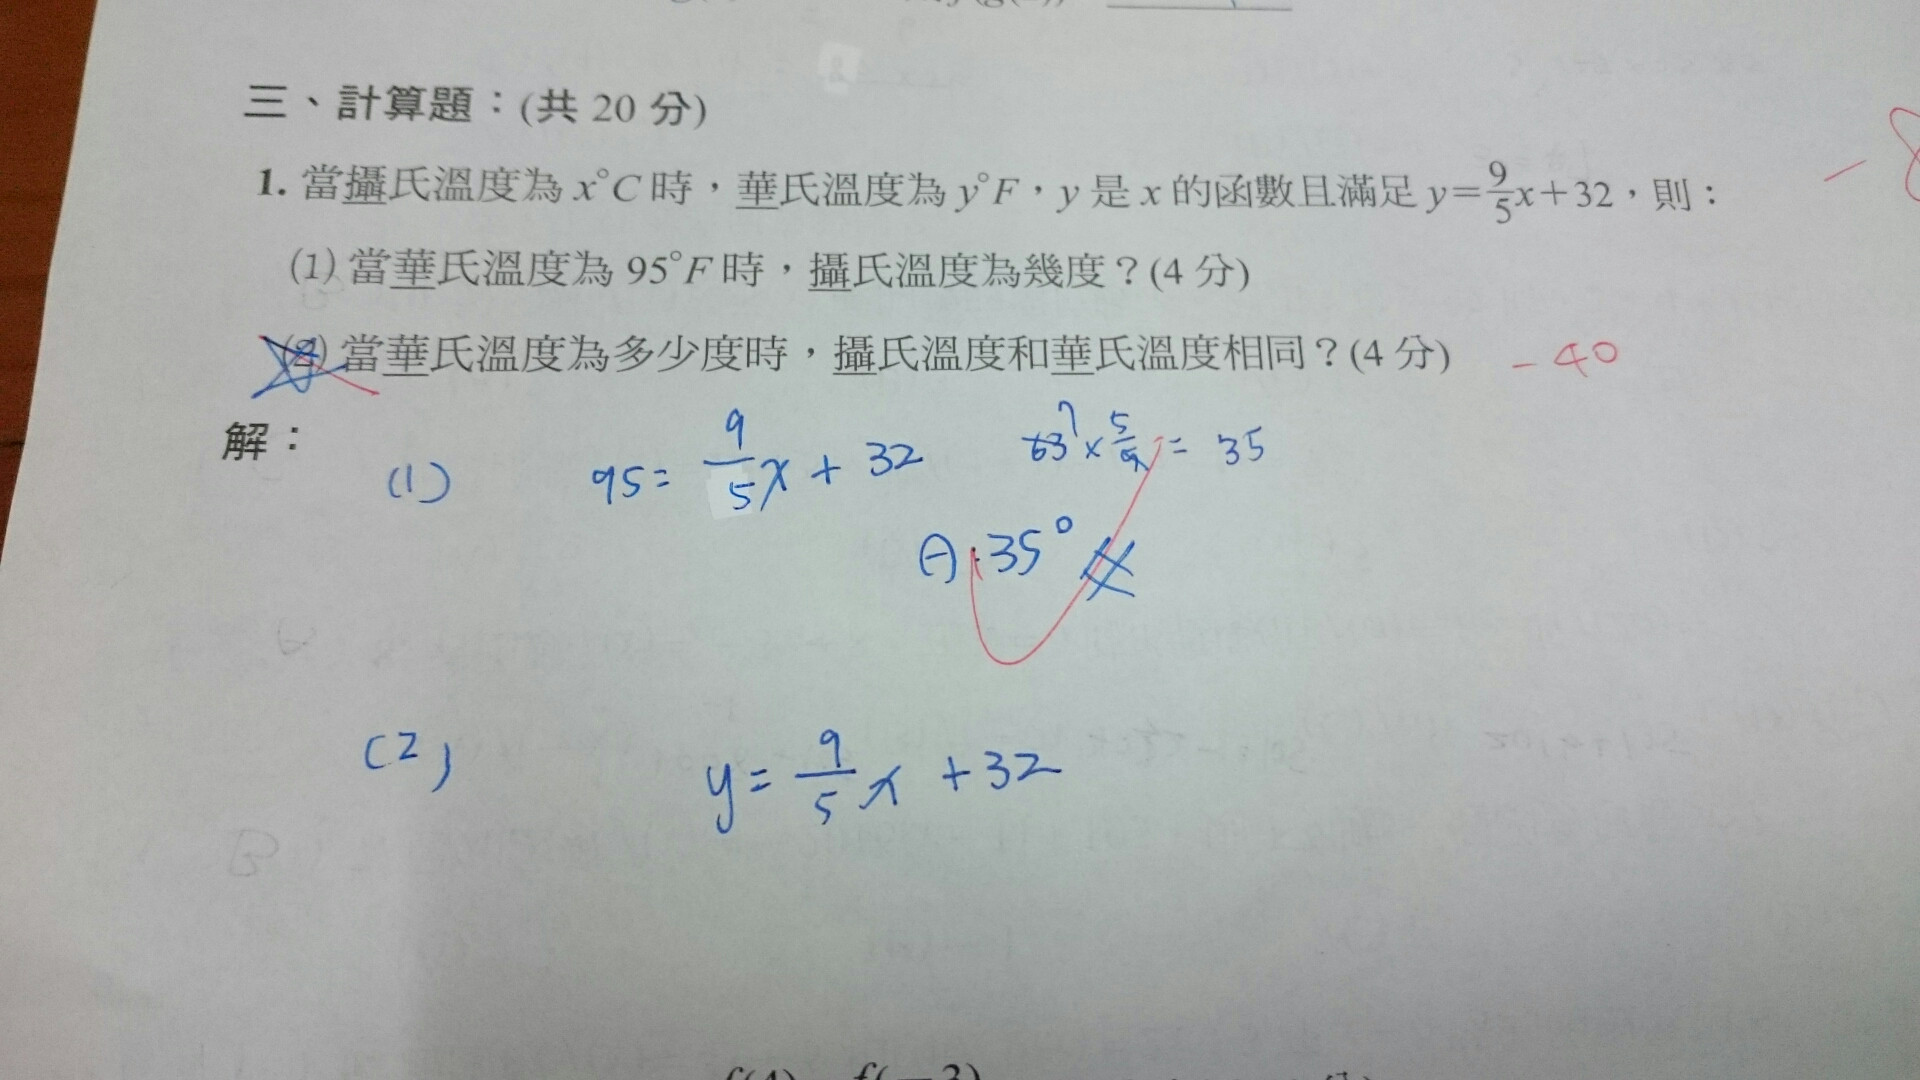 三、計算題：(共 20 分)
1. 當攝氏溫度為 x°C 時，華氏溫度為 y°F，y 是 x 的函數且滿足 y=9/5x+32，則：
(1) 當華氏溫度為 95°F 時，攝氏溫度為幾度？(4 分)
(2) 當華氏溫度為多少度時，攝氏溫度和華氏溫度相同？(4 分) -40
解：
(1) 95= 9/5x + 32 63 7 × 5/9 = 35
A:35°
(2) y= 9/5x +32
f(4) f(-3)